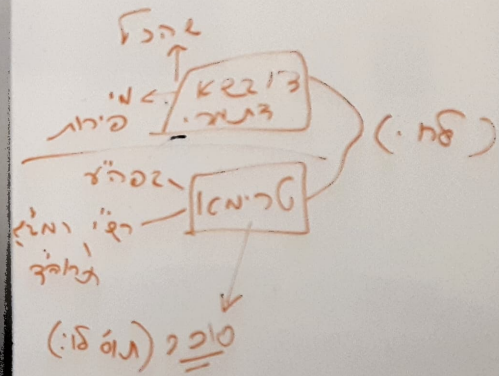 שהכל
דובשא
דתמרי.
מי
פירות
(לח.)
בפה"ע
טרימא
רש"י רמב"ם
תרוה"ד
סוכר (תוס' לו:)